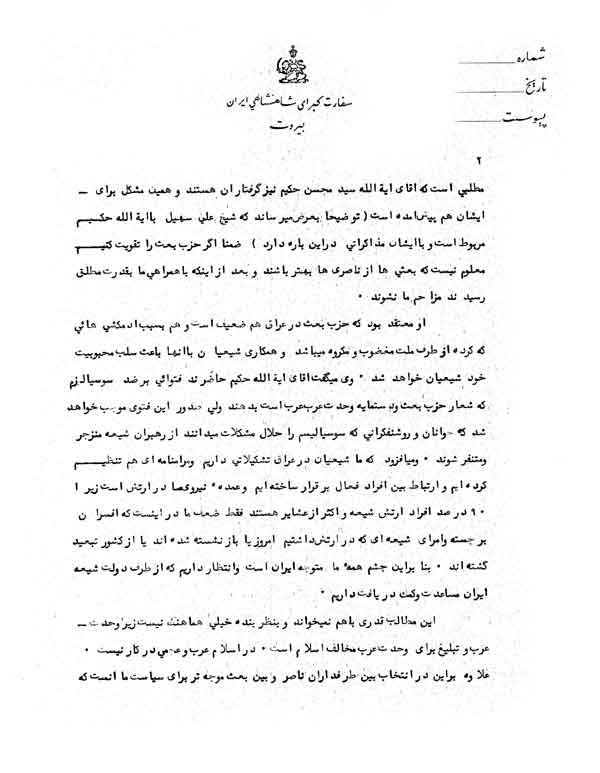 شماره
تاریخ
پیوست
سفارت کبرای شاهنشاهی ایران
بیروت
۲
مطلبی است که اقای ایة الله سید محسن حکیم نیز گرفتار ان هستند و همین مشکل برای ـ
ایشان هم پیش امده است ( توضیحا بعرض میرساند که شیخ علی سهیل با ایة الله حکیم
مربوط است و با ایشان مذاکراتی در این باره دارد ) ضمنا اگر حزب بعث را تقویت کنیم
معلوم نیست که بعثی ها از ناصری ها بهتر باشند و بعد از اینکه با همراهی ما بقدرت مطلق
رسیدند مزاحم ما نشوند ۰
او معتقد بود که حزب بعث در عراق هم ضعیف است و هم بسبب ادمکشی هائی
که کرده از طرف ملت مغضوب و مکروه میباشد و همکاری شیعیان با انها باعث سلب محبوبیت
خود شیعیان خواهد شد ۰ وی میگفت اقای ایة الله حکیم حاضرند فتوائی بر ضد سوسیالیزم
که شعار حزب بعث و دستمایه وحدت عرب است بدهند ولی صدور این فتوی موجب خواهد
شد که جوانان و روشنفکرانی که سوسیالیسم را حلال مشکلات میدانند از رهبران شیعه منزجر
ومتنفر شوند ۰ ومیافزود که ما شیعیان در عراق تشکیلاتی داریم ومرامنامه ای هم تنظیم
کرده ایم و ارتباط بین افراد فعال برقرار ساخته ایم و عمده نیروی ما در ارتش است زیرا
۹۰ در صد افراد ارتش شیعه و اکثر از عشایر هستند فقط ضعف ما در اینست که افسران
برجسته وامرای شیعه ای که در ارتش داشتیم امروز یا باز نشسته شده اند یا از کشور تبعید
گشته اند ۰ بنا براین چشم همه ما متوجه ایران است وانتظار داریم که از طرف دولت شیعه
ایران مساعدت وکمک دریافت داریم ۰
این مطالب قدری باهم نمیخواند و بنظر بنده خیلی هماهنگ نیست زیرا وحدت ـ
عرب و تبلیغ برای وحدت عرب مخالف اسلام است ۰ در اسلام عرب و عجمی در کار نیست ۰
علاوه براین در انتخاب بین طرفداران ناصر و بین بعث موجه تر برای سیاست ما انست که